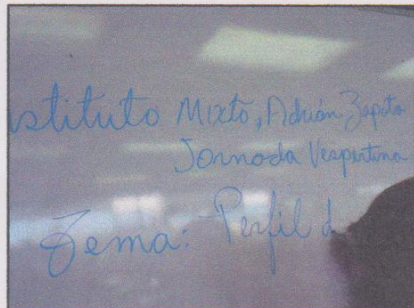 Instituto Mixto, Adrián Zapata
Jornada Vespertina
Tema: Perfil d